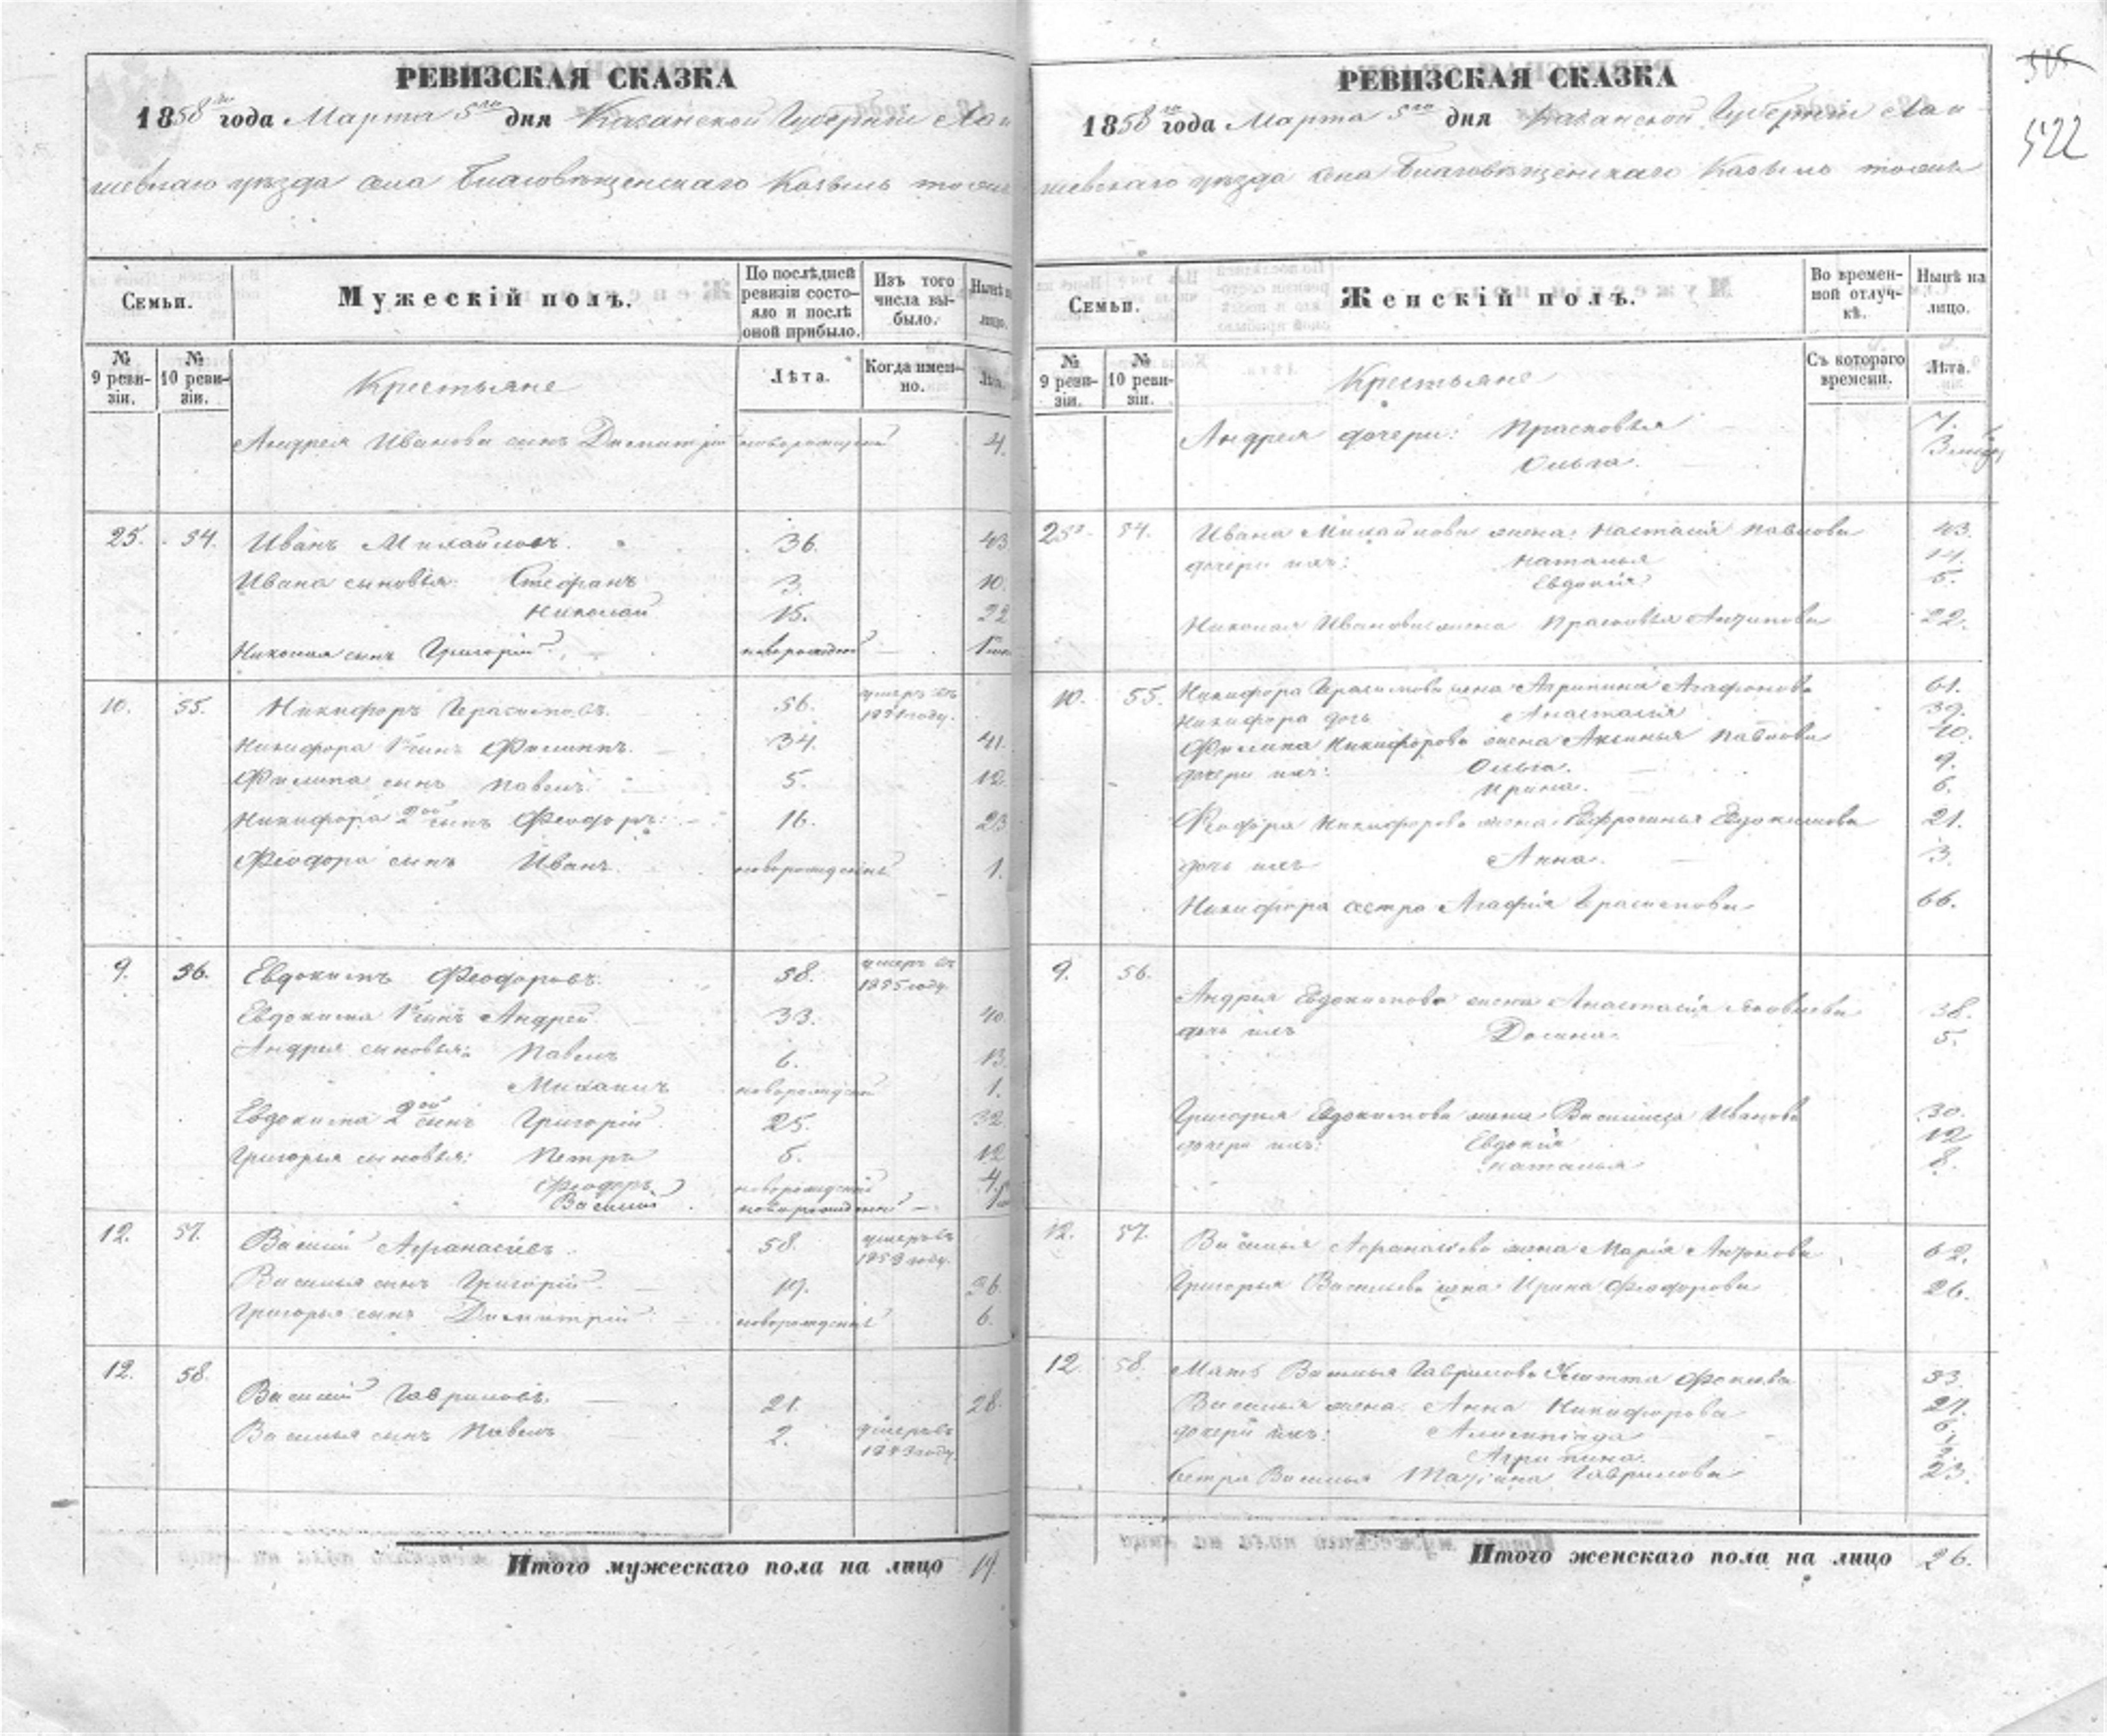 РЕВИЗСКАЯ СКАЗКА
1858го года Марта 5го дня Казанской Губерніи Лаи
шевскаго уѣзда села Благовѣщенскаго
Семьи.
Мужескій полъ.
По послѣдней ревизіи состояло и послѣ оной прибыло.
Изъ того числа выбыло.
Нынѣ на лицо.
№ 9 ревизіи.
№ 10 ревизіи.
Крестьяне
Лѣта.
Когда именно.
Лѣта.
Андрея Иванова сынъ Димитрій новорожденный 4.
25. 54. Иванъ Михайловъ. 36. 43
Ивана сыновья: Стефанъ 3. 10.
Николай 15. 22
Николая сынъ Григорій новорожденный
10. 55. Никифоръ Герасимовъ. 56. умеръ въ
Никифора 1й сынъ Филиппъ. 34. 41.
Филипа сынъ Павелъ 5. 12
Никифора 2ой сынъ Феодоръ: 16. 23
Феодора сынъ Иванъ новорожденный 1.
9. 56. Евдокимъ Феодоровъ. 58. умеръ въ
Евдокима 1й сынъ Андрей 33. 40.
Андрея сыновья: Павелъ 6. 13.
Михаилъ новорожденный 1.
Евдокима 2ой сынъ Григорій 25. 32
Григорья сыновья: Петръ 5. 12
Феодоръ новорожденный 4.
Василій новорожденный
12. 57. Василій Афанасьевъ 58. умеръ въ
Василья сынъ Григорій 19. 26.
Григорья сынъ Димитрій новорожденный 6.
12. 58. Василій Гавриловъ. 21. 28.
Василья сынъ Павелъ 2. умеръ въ
Итого мужескаго пола на лицо 19.
РЕВИЗСКАЯ СКАЗКА
1858го года Марта 5го дня Казанской Губерніи Лаи
шевскаго уѣзда села Благовѣщенскаго
522
Семьи.
Женскій полъ.
Во временной отлучкѣ.
Нынѣ на лицо.
№ 9 ревизіи.
№ 10 ревизіи.
Крестьяне
Съ котораго времени.
Лѣта.
Андрея дочери: Прасковья 7.
Ольга.
25. 54. Ивана Михайлова жена: Настасія Павлова 43.
дочери ихъ: Наталья 14.
Евдокія 5.
Николая Иванова жена Прасковья Антипова 22.
10. 55. Никифора Герасимова жена Агрипина Агафонова 61.
Никифора дочь Анастасія 39.
Филипа Никифорова жена Аксинья Павлова 40.
дочери ихъ: Ольга. 9.
Ирина. 6.
Феодора Никифорова жена Ефросинья Евдокимова 21.
дочь ихъ Анна. 3.
Никифора сестра Агафія Герасимова 66.
9. 56. Андрея Евдокимова жена Анастасія Яковлева 38.
дочь ихъ Домна. 5.
Григорья Евдокимова жена Василиса Иванова 30.
дочери ихъ: Евдокія 12
Наталья 8.
12. 57. Василья Афанасьева жена Марія Антонова 62.
Григорья Васильева жена Ирина Феодорова 26.
12 58. Мать Василья Гаврилова 53.
Василья жена Анна Никифорова 27.
дочери ихъ: Алимпіада 6.
Агрипина.
Сестра Василья Гаврилова 23.
Итого женскаго пола на лицо 26.